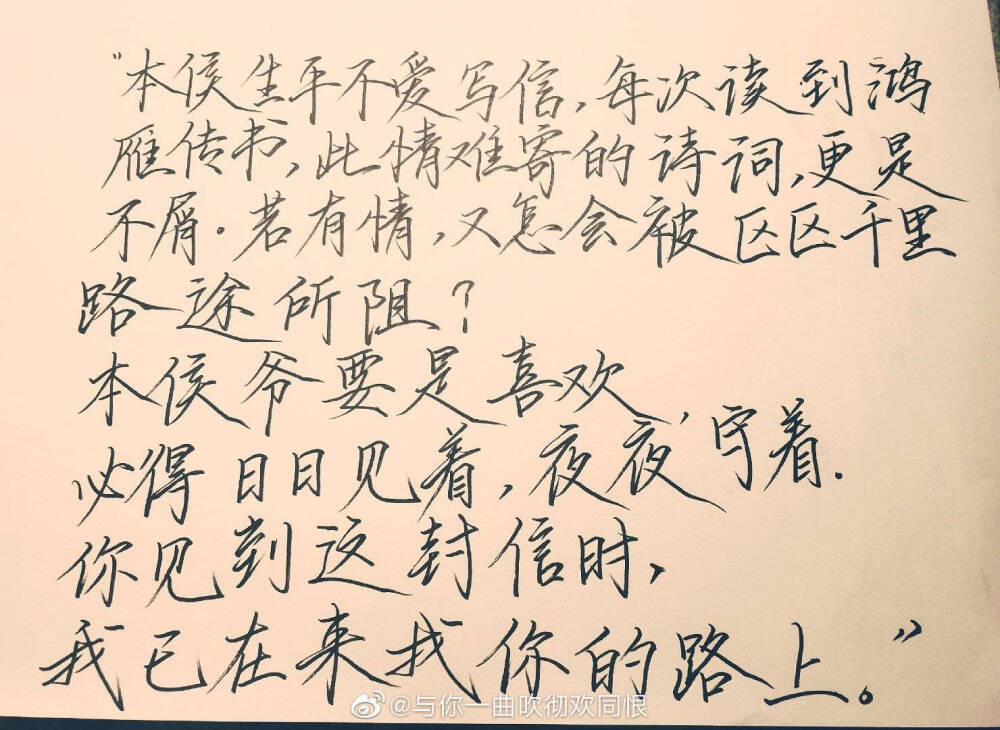 “本侯生平不爱写信，每次读到鸿
雁传书，此情难寄的诗词，更是
不屑.若有情，又怎会被区区千里
路途所阻？
本侯爷要是喜欢，
必得日日见着，夜夜守着.
你见到这封信时，
我已在来找你的路上。”
@与你一曲吹彻欢同恨